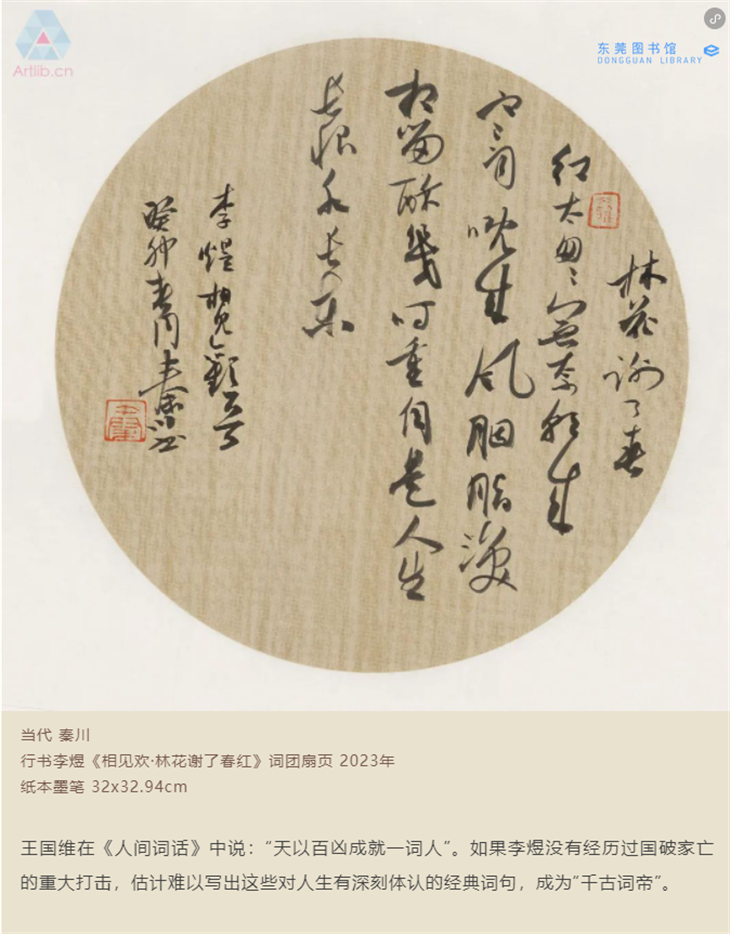 Artlib.cn
东莞图书馆
DONGGUAN LIBRARY
林花謝了春
红太匆〻無奈朝来
寒雨晚来风胭脂淚
相留酔幾时重自是人生
长恨水长东
李煜相見歡
癸卯春月秦川
当代 秦川
行书李煜《相见欢·林花谢了春红》词团扇页 2023年
纸本墨笔 32x32.94cm
王国维在《人间词话》中说：“天以百凶成就一词人”。如果李煜没有经历过国破家亡
的重大打击，估计难以写出这些对人生有深刻体认的经典词句，成为“千古词帝”。